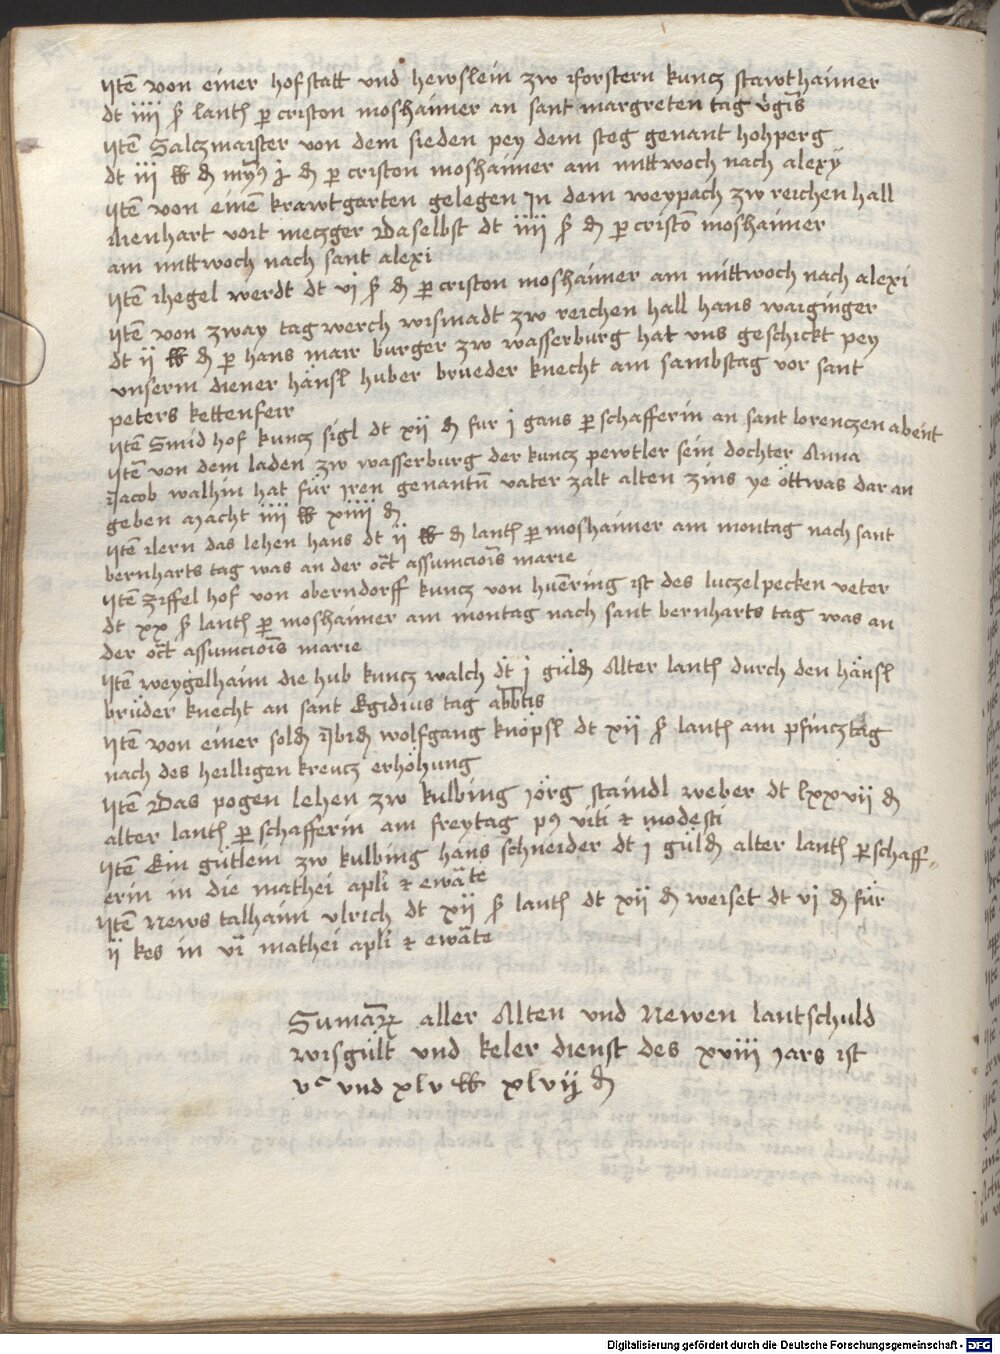 Itē von einer hofstatt vnd hewslein zw Forstern kuncz stawthaimer
dt iiii ß lantß p criston moshaimer an sant margreten tag v̄gīs
Itē Salczmaister von dem sieden pey dem steg genant hohperg
dt iii ℔ ₰ myn9 j ₰ p criston moshaimer am mittwoch nach alexÿ
Itē von einē krawtgarten gelegen In dem weypach zw reichen hall
lienhart voit meczger Daselbst dt iiii ß ₰ p cristō moshaimer
am mittwoch nach sant alexi
Itē Hegel werdt dt vi ß ₰ p criston moshaimer am mittwoch nach alexi
Itē von zway tagwerch wismadt zw reichen hall hans waiginger
dt ii ℔ ₰ p hans mair burger zw wasserburg hat vns geschickt pey
vnserm diener hänsl huber brueder knecht am sambstag vor sant
peters kettenfeir
Itē Smid hof kuncz sigl dt xii ₰ fur i gans p schafferin an sant lorenczen abent
Itē von dem laden zw wasserburg der kuncz pewtler sein dochter Anna
Jacob walhin hat für iren genantn̄ vater zalt alten zins ye öttwas dar an
geben macht iiii ℔ xiiii ₰
Itē ilern das lehen hans dt ii ℔ ₰ lantß p moshaimer am montag nach sant
bernharts tag was an der oct̄ assumciōis marie
Itē ziffel hof von oberndorff kuncz von huēring ist des luczelpecken veter
dt xx ß lantß p moshaimer am montag nach sant bernharts tag was an
der oct̄ assumciōis marie
Itē weygelhaim die hub kuncz walch dt i güld₰ Alter lantß durch den hänsl
brüder knecht an sant Egidius tag abb̄tis
Itē von einer sold₰ Ibid₰ wolfgang knöpsl dt xii ß lantß am pfincztag
nach des heilligen krewcz erhöhung
Itē Das pogen lehen zw kulbing jörg staindl weber dt lxxvii ₰
alter lantß p schafferin am freytag p9 viti & modesti
Itē Ein gütlein zw kulbing hans schneider dt i güld₰ alter lantß p schaff⸗
erin in die mathei apl̄i & ewāte
Itē News talhaim vlrich dt xii ß lantß dt xii ₰ weiset dt vi ₰ für
ii kes in vī mathei apl̄i & ewāte
Sumāꝝ aller Alten vnd Newen lantschuld
wisgült vnd keler dienst des xviii jars ist
vᶜ vnd xlv ℔ xlvii ₰
Digitalisierung gefördert durch die Deutsche Forschungsgemeinschaft - DFG